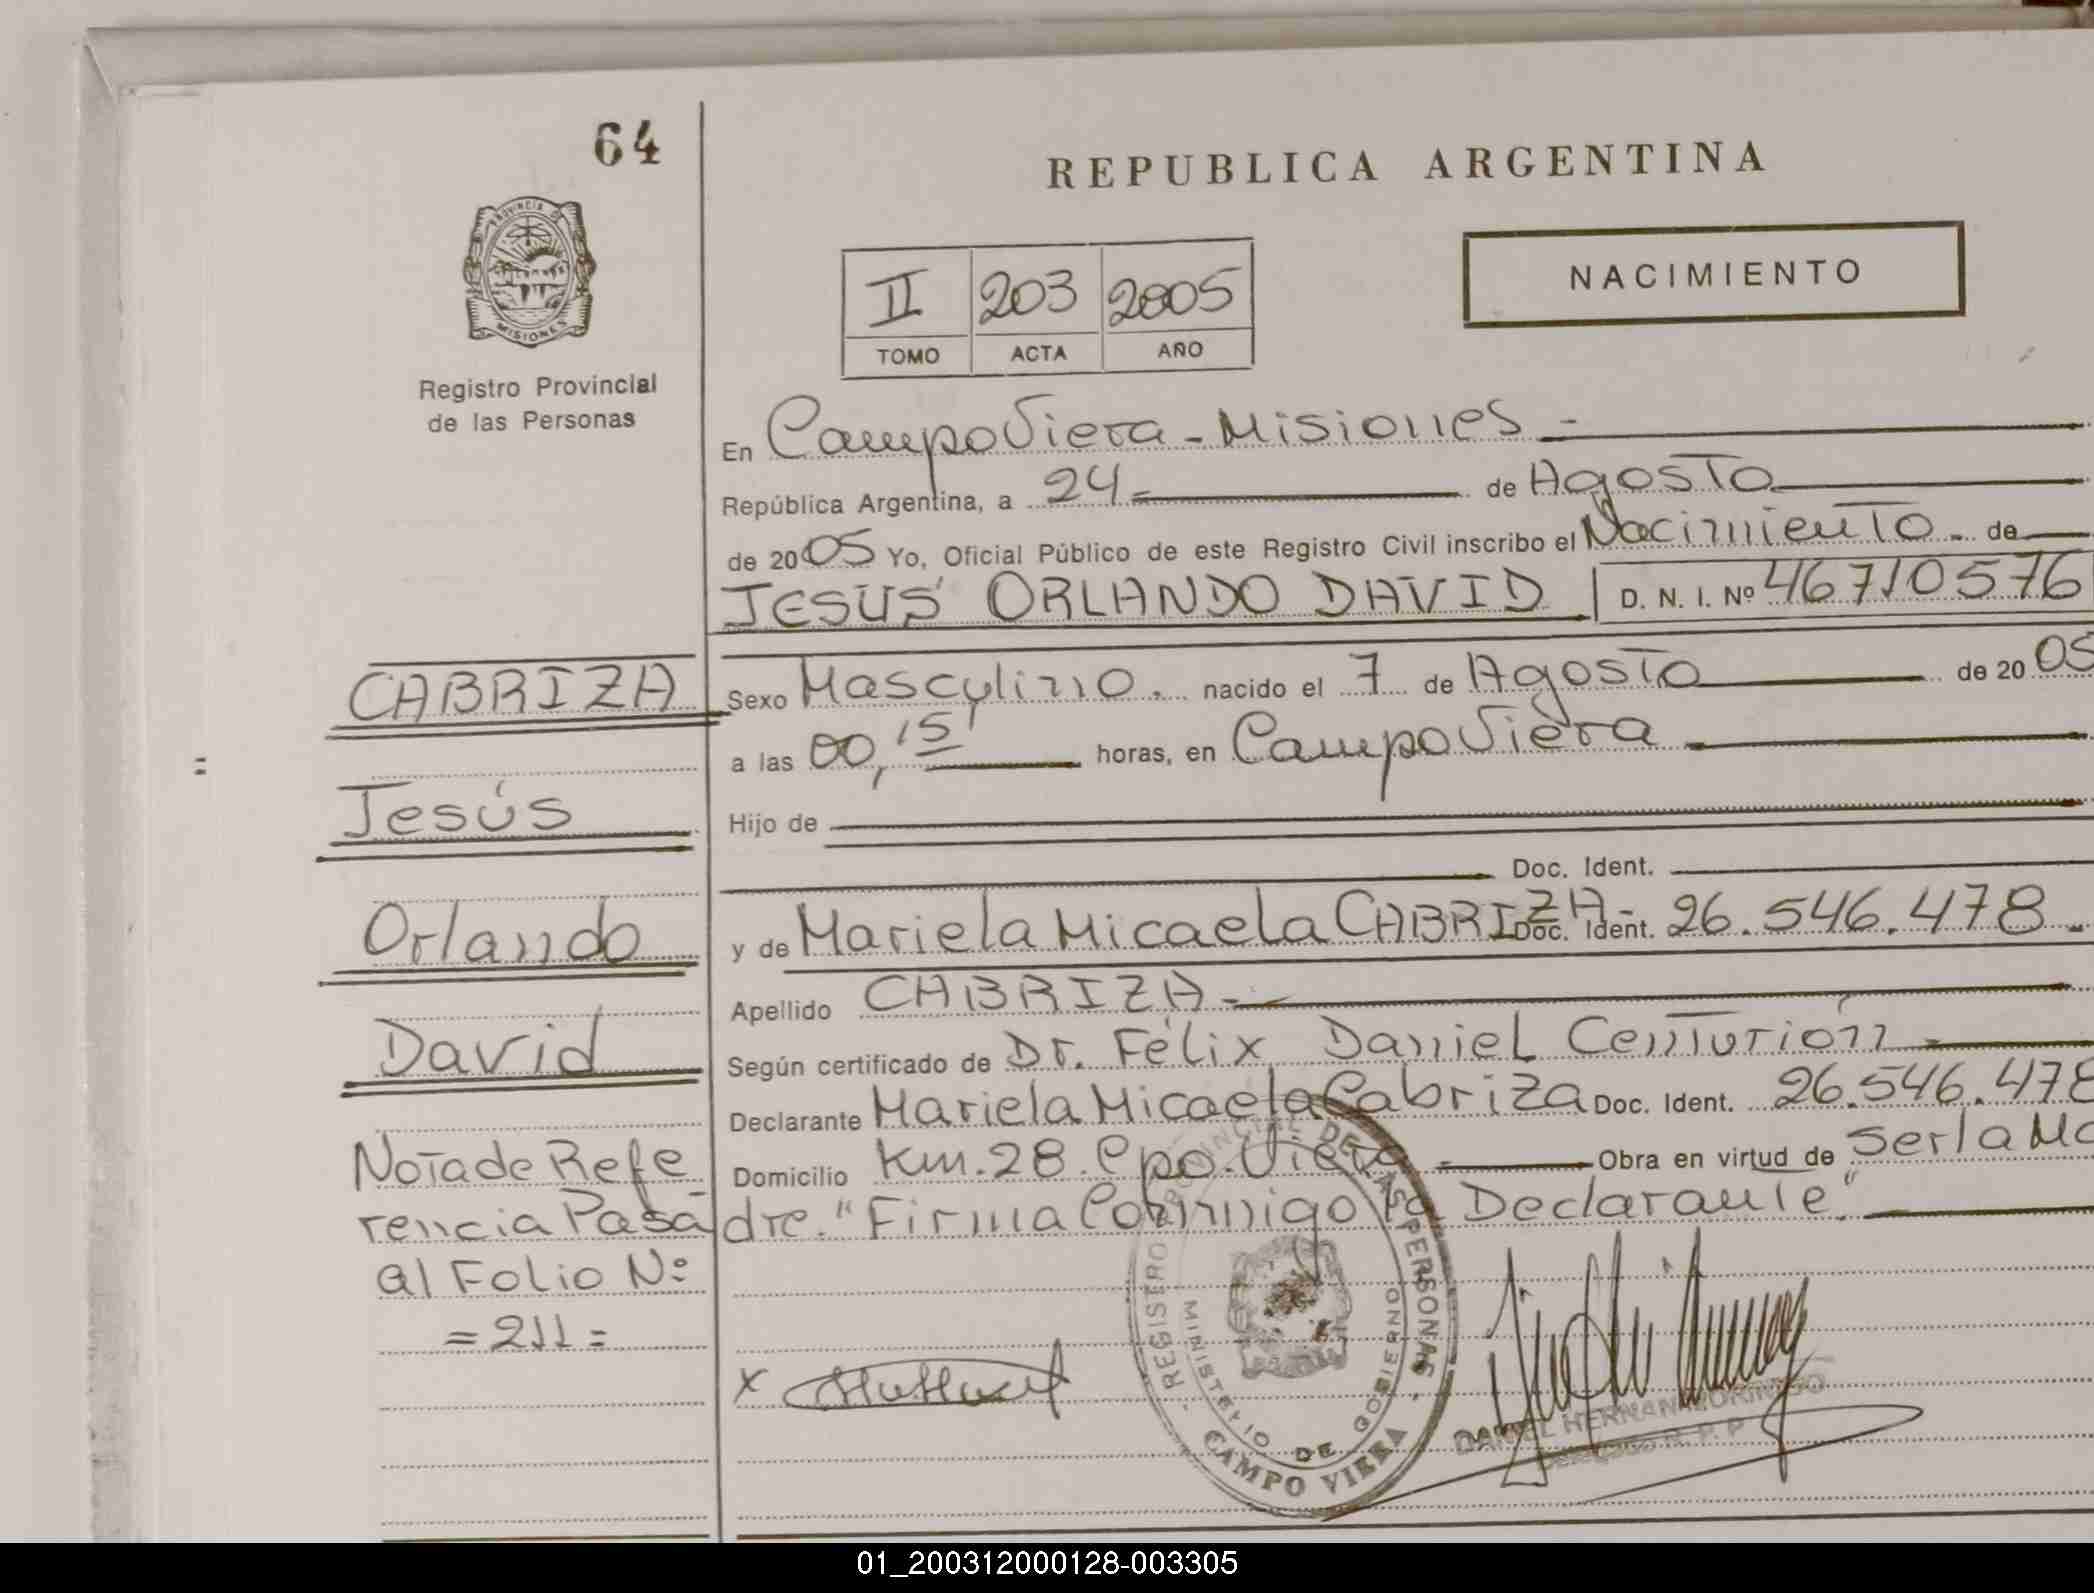 64
REPUBLICA ARGENTINA
PROVINCIA DE
MISIONES
NACIMIENTO
II 203 2005
TOMO ACTA AÑO
Registro Provincial
de las Personas
En Campo Viera - Misiones -
República Argentina, a 24 = de Agosto
de 2005 Yo, Oficial Público de este Registro Civil inscribo el Nacimiento - de
JESÚS ORLANDO DAVID D. N. I. Nº 46710576
CABRIZA
Sexo Masculino. nacido el 7 de Agosto de 2005
a las 00,15' horas, en Campo Viera
Jesús
Hijo de
Doc. Ident.
Orlando
y de Mariela Micaela CABRIZA - Doc. Ident. 26.546.478 -
Apellido CABRIZA -
David
Según certificado de Dr. Félix Daniel Centurión -
Declarante Mariela Micaela Cabriza Doc. Ident. 26.546.478
Nota de Refe
Domicilio Km. 28. Cpo. Viera Obra en virtud de Ser la Ma
rencia Pasa
dre. "Firma Conmigo la Declarante"
al Folio Nº
= 211 =
x
REGISTRO PROVINCIAL DE LAS PERSONAS
MINISTERIO DE GOBIERNO
CAMPO VIERA
DANIEL HERNAN
R. P. P.
01_200312000128-003305